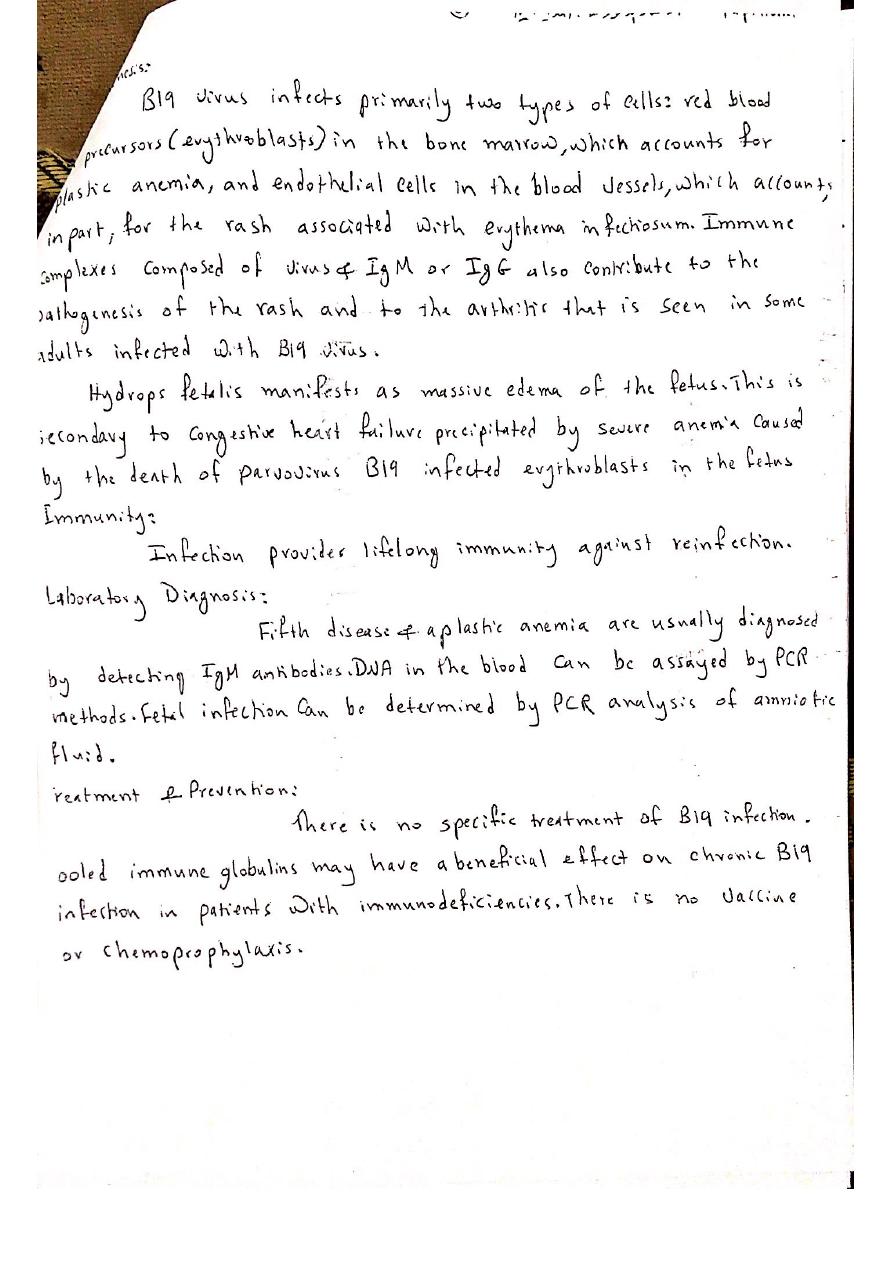 nesis:
B19 virus infects primarily two types of cells: red blood
precursors (erythroblasts) in the bone marrow, which accounts for
plastic anemia, and endothelial cells in the blood vessels, which accounts,
in part, for the rash associated with erythema infectiosum. Immune
complexes composed of virus & IgM or IgG also contribute to the
pathogenesis of the rash and to the arthritis that is seen in some
adults infected with B19 virus.
Hydrops fetalis manifests as massive edema of the fetus. This is
secondary to congestive heart failure precipitated by severe anemia caused
by the death of parvovirus B19 infected erythroblasts in the fetus
Immunity:
Infection provides lifelong immunity against reinfection.
Laboratory Diagnosis:
Fifth disease & aplastic anemia are usually diagnosed
by detecting IgM antibodies. DNA in the blood can be assayed by PCR
methods. Fetal infection can be determined by PCR analysis of amniotic
fluid.
reatment & Prevention:
There is no specific treatment of B19 infection.
ooled immune globulins may have a beneficial effect on chronic B19
infection in patients with immunodeficiencies. There is no vaccine
or chemoprophylaxis.